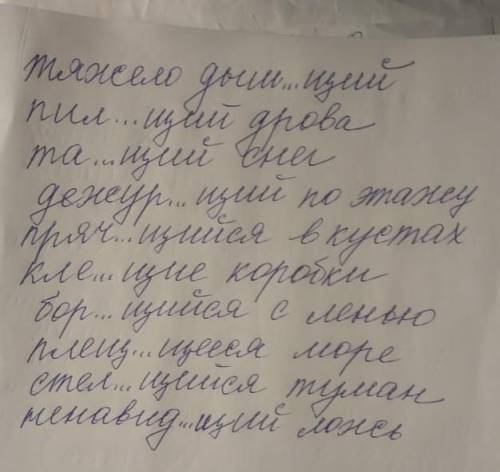 тяжело дыш...щий
пил...щий дрова
та...щий снег
дежур...щий по этажу
пряч...щийся в кустах
кле...щие коробки
бор...щийся с ленью
плещ...щееся море
стел...щийся туман
ненавид...щий ложь